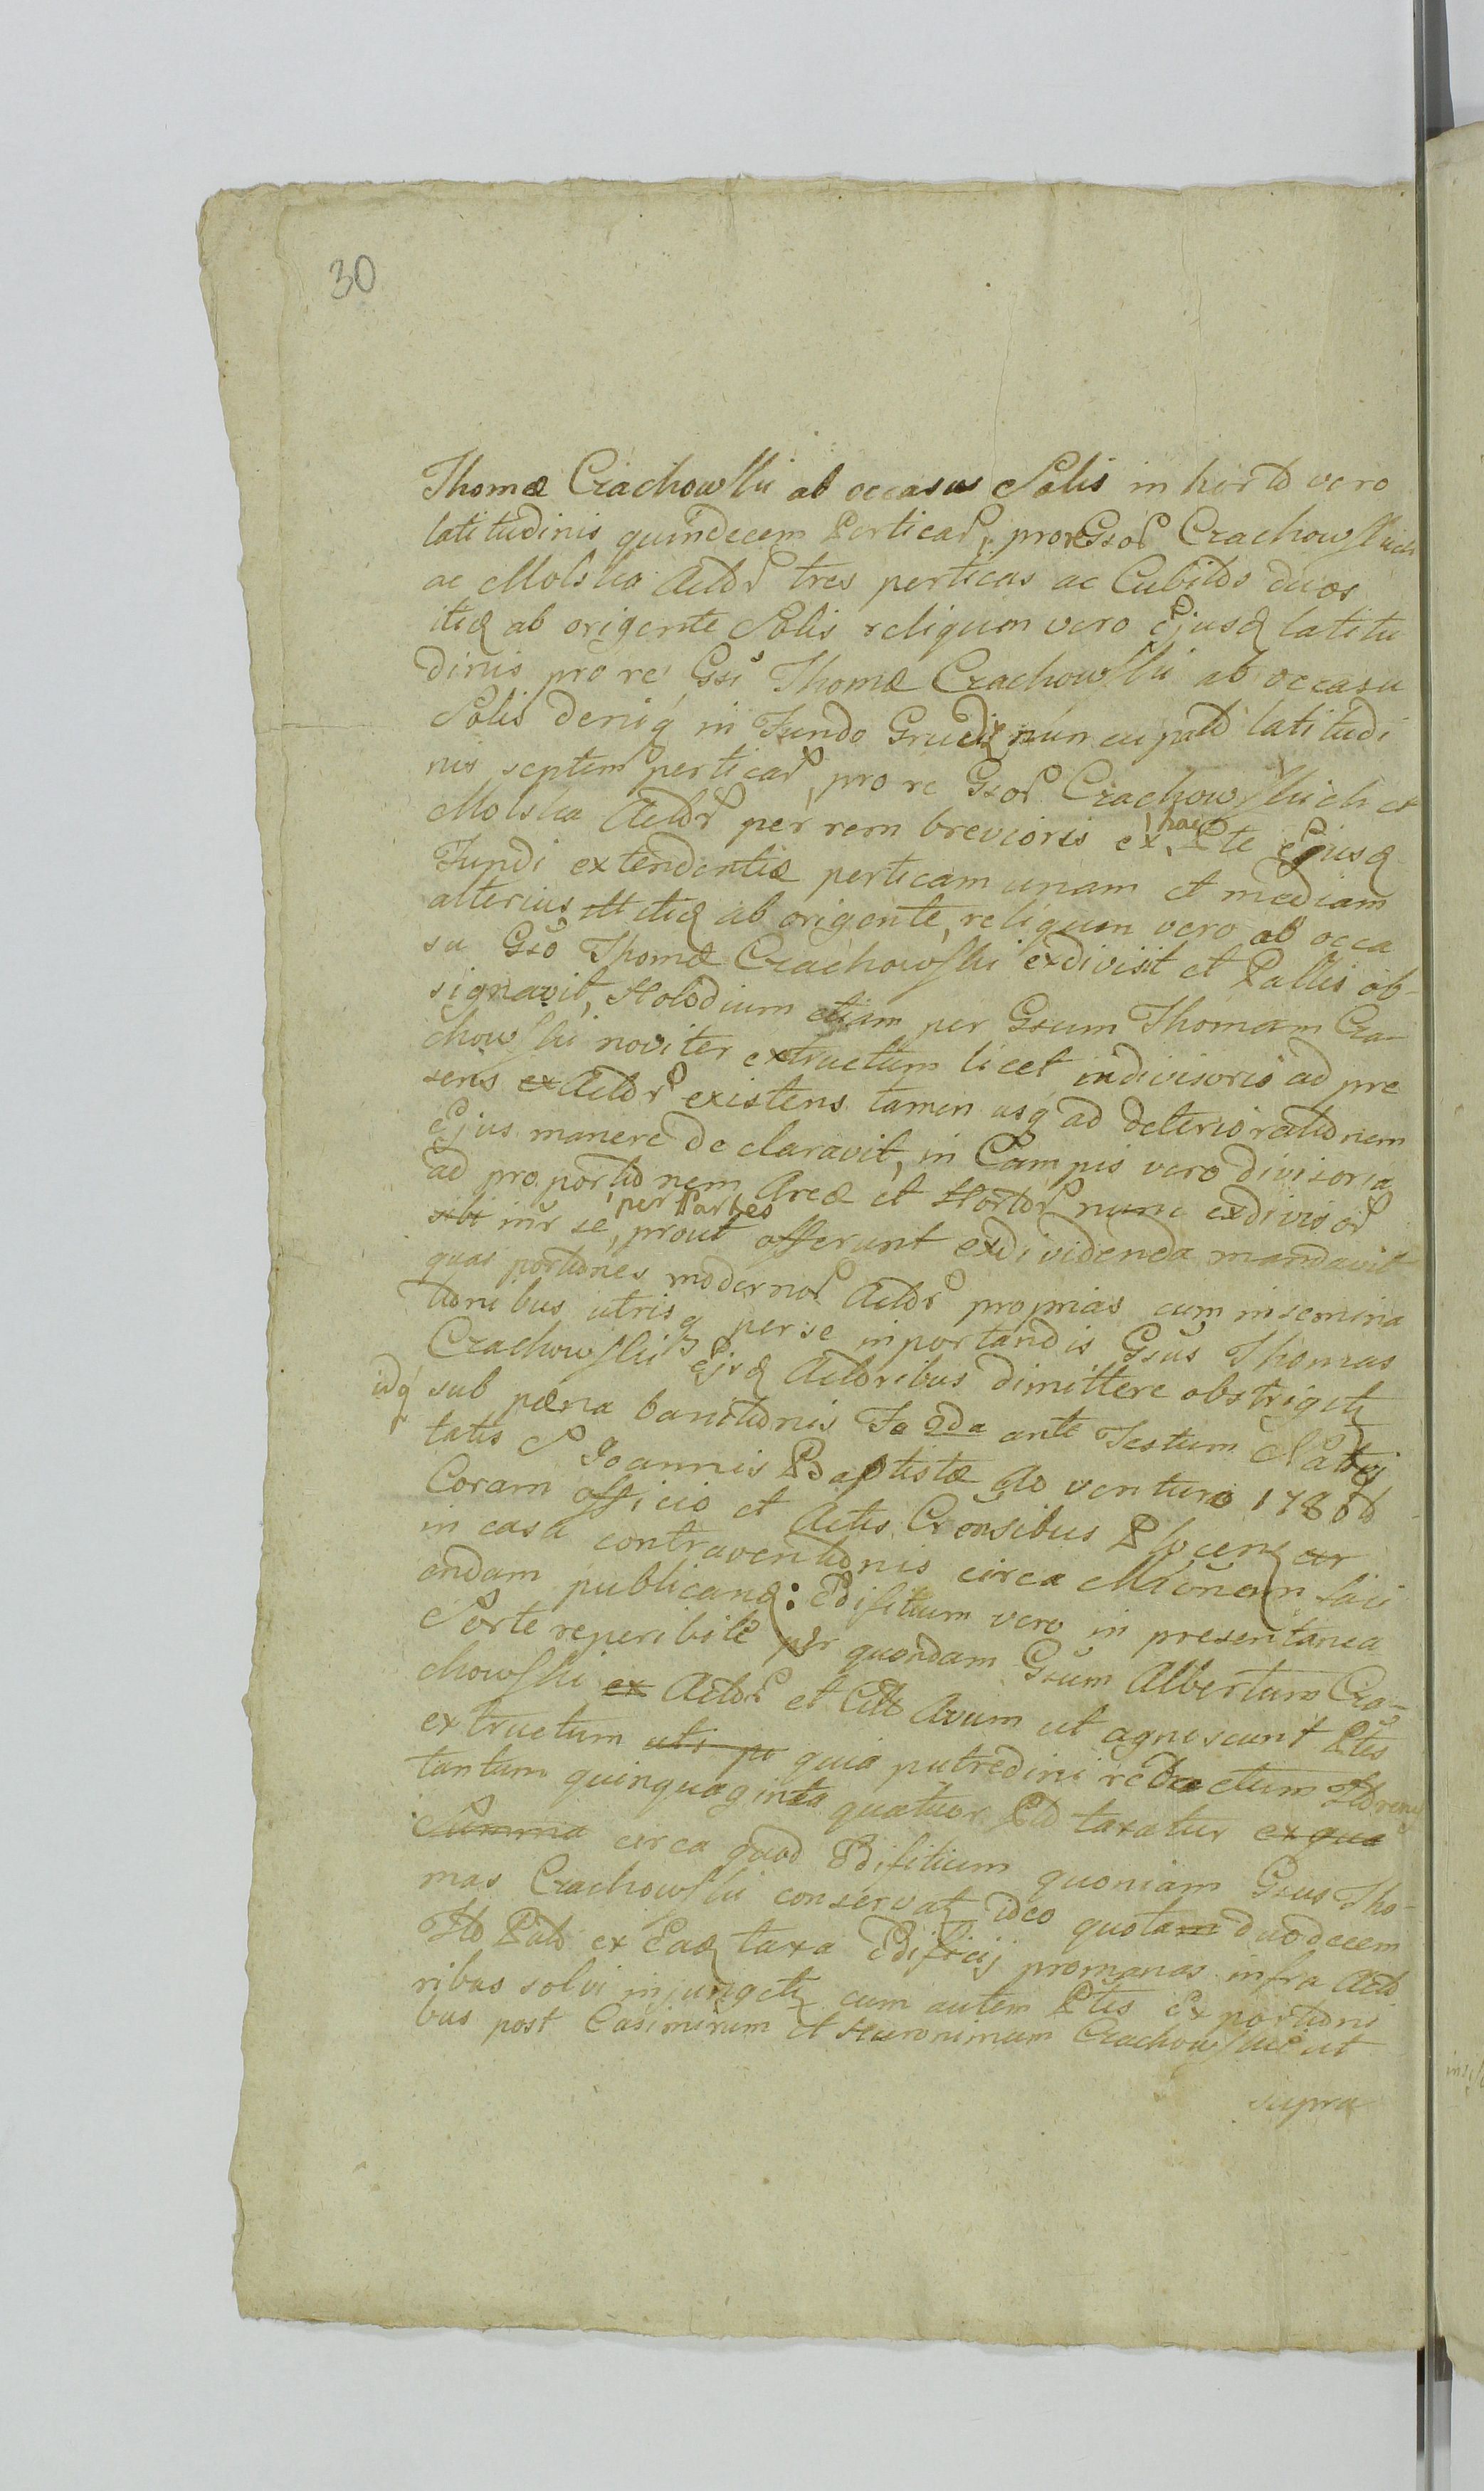 30
Thomæ Czachowski ab occasus Solis in horto vero
latitudinis quindecem Perticar, pro re Gsor Czachowskich
ac Molska Actor tres perticas ac Cubitos duos
itid ab origente Solis reliquum vero Ejusd latitu
dinis pro re Gsi Thomæ Czachowski ab occasu
Solis deniq in Fundo Grudz nuncupato latitudi
nis septem perticar, pro re Gsor Czachowskich et
Molska Actor per rem brevioris ex hac Pte Ejusd
Fundi extendentiæ perticam unam et mediam
alterius itid ab origente, reliquum vero ab occa
su Gso Thomæ Czachowski exdivisit et Pallis ob-
signavit, Stolodium etiam per Gsum Thomam Cza-
chowski noviter extructum licet indivisoris ad pre
sens ex Actor existens tamen usq ad deteriorationem
Ejus manere declaravit, in Campis vero divisoria
ad proportionem Areæ et Hortor nunc exdivisor
sibi inr se, per Partes prout offerunt exdividenda mandavit
quas portiones modernor Actor proprias cum insemina
tionibus utrisq per se inportandis Gsus Thomas
Czachowski Ejsd Actoribus dimittere obstrigetz
idq sub pæna banitionis Fa 2da ante Festum Nativi
tatis S Joannis Baptistæ Ao venturo 178
Coram officio et Actis Cronsibus Plocens
in casu contraventionis circa Mionem faci
endam publicand: Edifitium vero in presentanea
Sorte reperibile per quondam Gsum Albertum Cza-
chowski ex Actor et Citt Avum ut agnoscunt Ptes
extructum uti po quia putredini redactum Florenos
tantum quinquaginta quatuor Pld taxatur ex qua
Summa circa quod Edifitium quoniam Gsus Tho-
mas Czachowski conservatz ideo quotam duodecem
Flo Pald ex Ead taxa Edificij promanas infra Acto
ribus solvi injungetz cum autem Ptes Ex portioni
bus post Casimirum et Hieronimum Czachowskie ut
supra